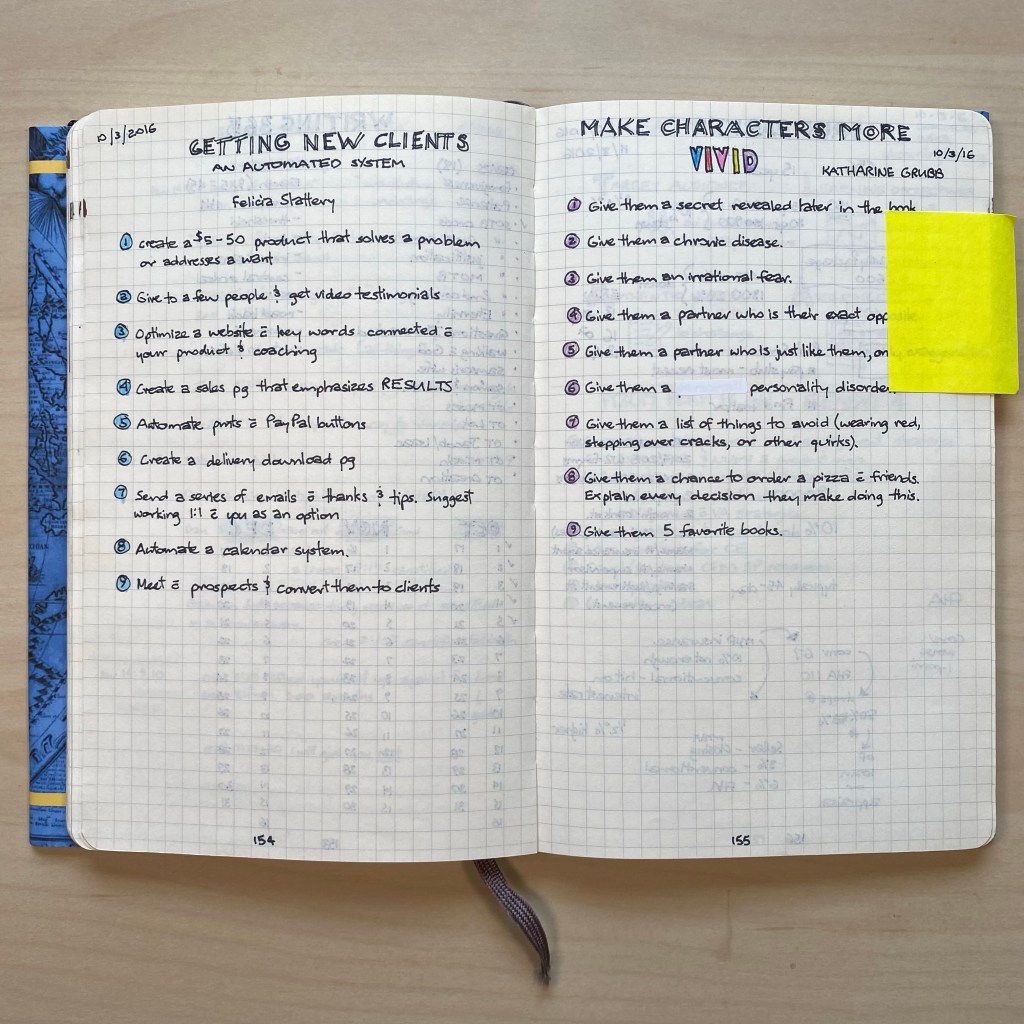 10/3/2016
GETTING NEW CLIENTS
AN AUTOMATED SYSTEM
Felicia Slattery
1 Create a $5-50 product that solves a problem
or addresses a want
2 Give to a few people & get video testimonials
3 Optimize a website c̄ key words connected c̄
your product & coaching
4 Create a sales pg that emphasizes RESULTS
5 Automate pmts c̄ PayPal buttons
6 Create a delivery download pg
7 Send a series of emails c̄ thanks & tips. Suggest
working 1:1 c̄ you as an option
8 Automate a calendar system.
9 Meet c̄ prospects & convert them to clients
154
MAKE CHARACTERS MORE
VIVID
10/3/16
KATHARINE GRUBB
1 Give them a secret revealed later in the book
2 Give them a chronic disease.
3 Give them an irrational fear.
4 Give them a partner who is their exact
5 Give them a partner who is just like them,
6 Give them a personality disorder.
7 Give them a list of things to avoid (wearing red,
stepping over cracks, or other quirks).
8 Give them a chance to order a pizza c̄ friends.
Explain every decision they make doing this.
9 Give them 5 favorite books.
155